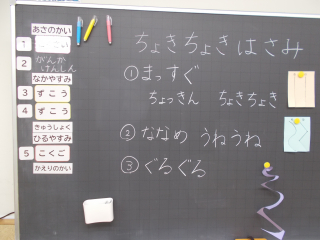 あさのかい
1
2 がんか
けんしん
なかやすみ
3 ずこう
4 ずこう
きゅうしょく
ひるやすみ
5 こくご
かえりのかい
ちょきちょきはさみ
①まっすぐ
ちょっきん ちょきちょき
②ななめ うねうね
③ぐるぐる